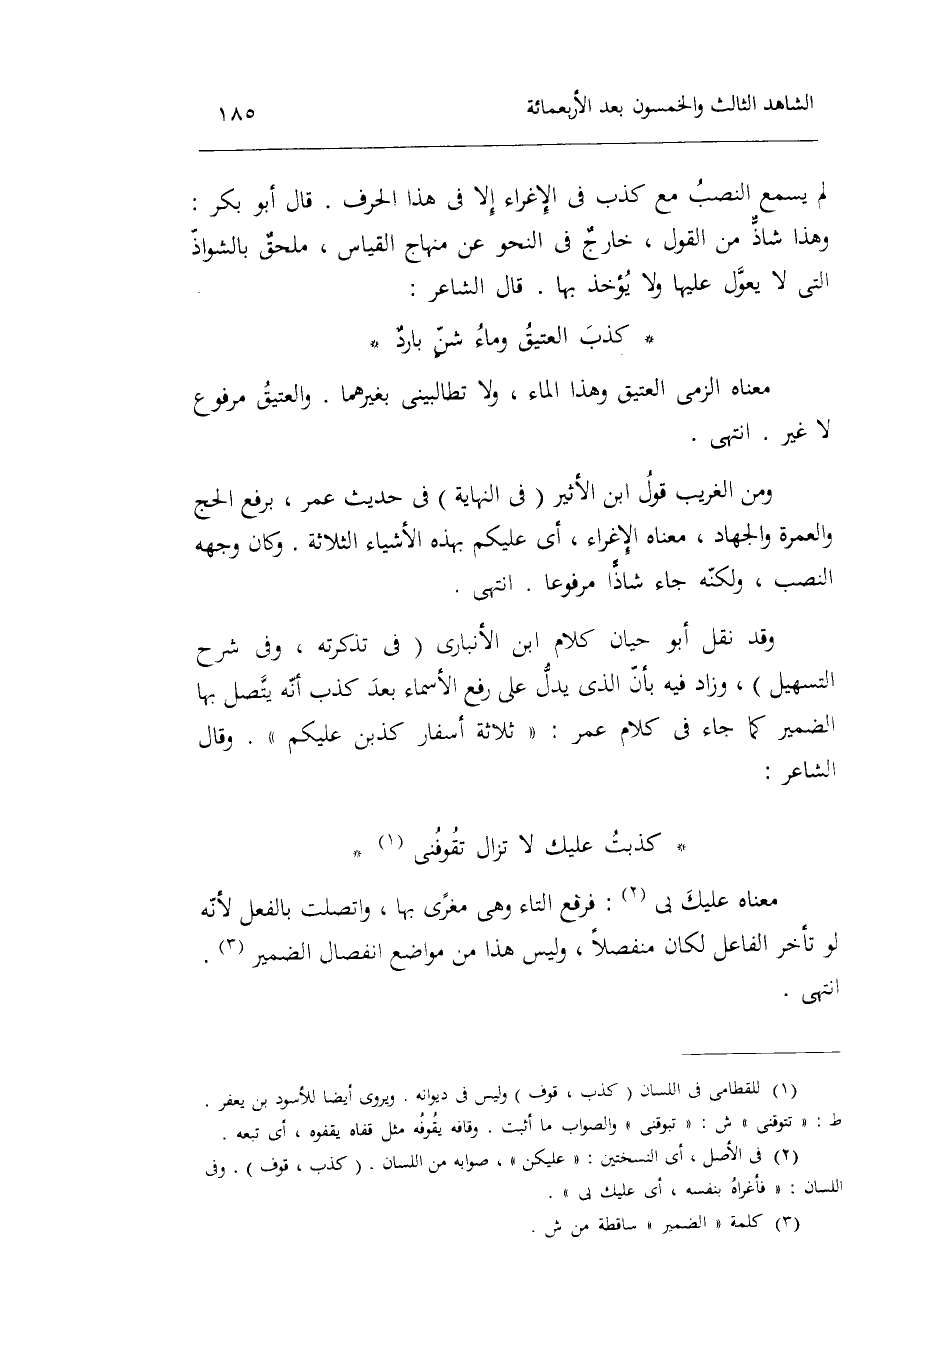 الشاهد الثالث والخمسون بعد الأربعمائة ١٨٥
لم يسمع النصبُ مع كذب فى الإغراء إلا فى هذا الحرف . قال أبو بكر :
وهذا شاذٌّ من القول ، خارجٌ فى النحو عن منهاج القياس ، ملحقٌ بالشواذّ
التى لا يعوَّل عليها ولا يُؤخذ بها . قال الشاعر :
* كذبَ العتيقُ وماءُ شنٍّ باردٌ *
معناه الزمى العتيق وهذا الماء ، ولا تطالبينى بغيرهما . والعتيقُ مرفوع
لا غير . انتهى .
ومن الغريب قولُ ابن الأثير ( فى النهاية ) فى حديث عمر ، برفع الحج
والعمرة والجهاد ، معناه الإغراء ، أى عليكم بهذه الأشياء الثلاثة . وكان وجهه
النصب ، ولكنّه جاء شاذًّا مرفوعا . انتهى .
وقد نقل أبو حيان كلام ابن الأنبارى ( فى تذكرته ، وفى شرح
التسهيل ) ، وزاد فيه بأنّ الذى يدلُّ على رفع الأسماء بعدَ كذب أنّه يتَّصل بها
الضمير كما جاء فى كلام عمر : « ثلاثة أسفار كذبن عليكم » . وقال
الشاعر :
* كذبتُ عليك لا تزال تقُوفُنى (١) *
معناه عليكَ بى (٢) : فرفع التاء وهى مغرًى بها ، واتصلت بالفعل لأنّه
لو تأخر الفاعل لكان منفصلاً ، وليس هذا من مواضع انفصال الضمير (٣) .
انتهى .
(١) للقطامى فى اللسان ( كذب ، قوف ) وليس فى ديوانه . ويروى أيضا للأسود بن يعفر .
ط : « تتوقنى » ش : « تبوقنى » والصواب ما أثبت . وقافه يقُوفُه مثل قفاه يقفوه ، أى تبعه .
(٢) فى الأصل ، أى النسختين : « عليكن » ، صوابه من اللسان . ( كذب ، قوف ) . وفى
اللسان : « فأغراهُ بنفسه ، أى عليك بى » .
(٣) كلمة « الضمير » ساقطة من ش .